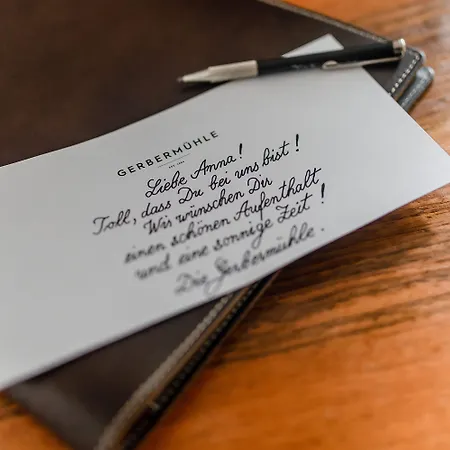 GERBERMÜHLE
Liebe Anna!
Toll, dass Du bei uns bist!
Wir wünschen Dir
einen schönen Aufenthalt
und eine sonnige Zeit!
Die Gerbermühle.